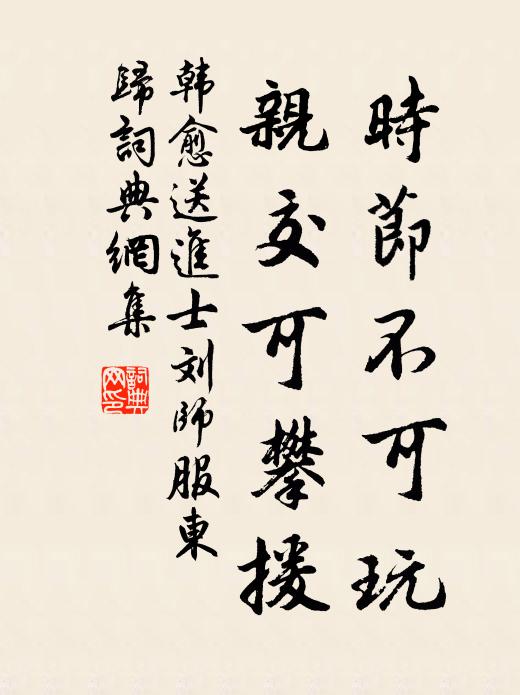 時節不可玩
親交可攀援
韩愈送進士刘師服東
歸詞典網集
詞典
网印